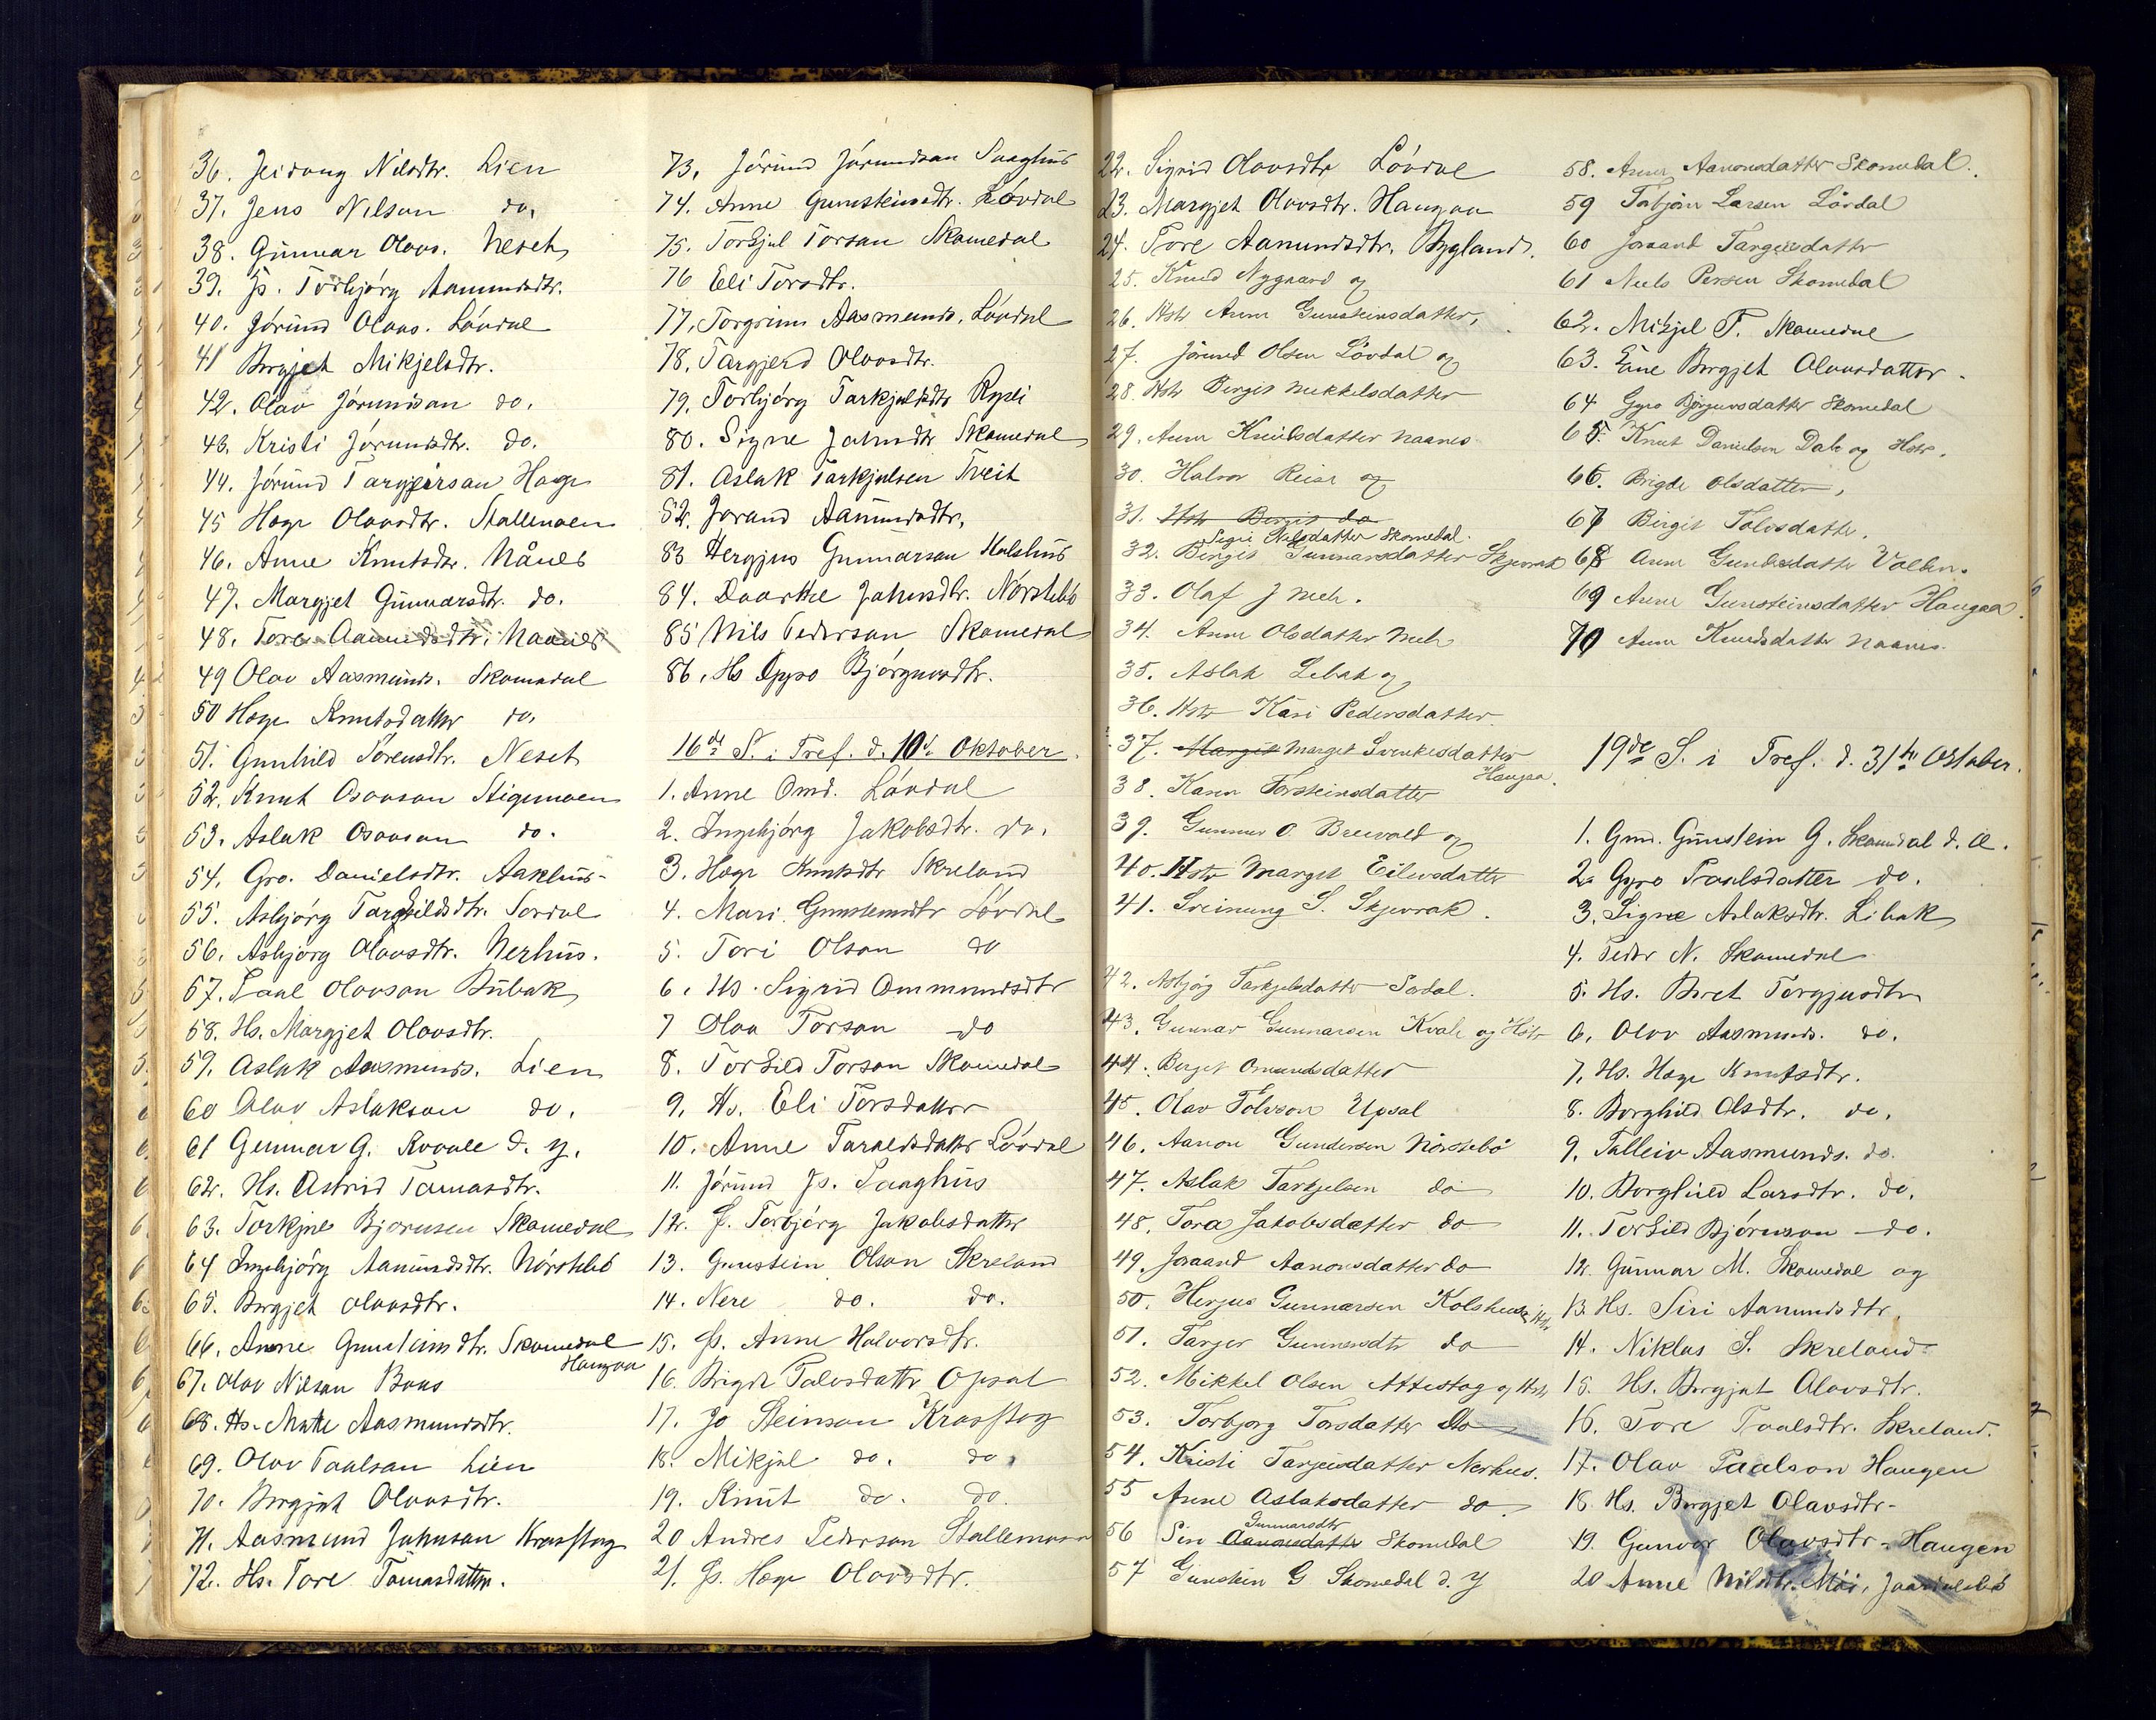 36. Jeidong Nilsdtr. Lien
37. Jens Nilson do.
38. Gunnar Olavs. Neset
39. Js. Torbjørg Aamundsdtr.
40. Jórund Olavs. Lóvdal
41 Bergjet Mikjelsdtr.
42. Olav Jórundson do.
43. Kristi Jórundsdtr. do.
44. Jórund Targjeirson Hage
45 Hæge Olavsdtr. Stallemoen
46. Anne Knutsdtr. Nånes
47. Margjet Gunnarsdtr. do.
48. Tore Aamundsdtr. Naanes
49 Olav Aasmunds. Skomedal
50 Hæge Knutsdatter do.
51. Gunhild Torensdtr. Neset
52. Knut Osovson Stigemoen
53. Aslak Osovson do.
54. Gro. Danielsdtr. Aaklhus
55. Asbjørg Targjeldsdtr. Sordal
56. Asbjørg Olavsdtr. Nerhus.
57. Paal Olavson Bubak
58. Hs. Margjet Olavsdtr.
59. Aslak Aasmunds. Lien
60 Olav Aslakson do.
61 Gunnar G. Kvaale d. y.
62. Hs. Astrid Tamasdtr.
63. Torkjel Bjornsen Skomedal
64 Ingebjørg Aanundsdtr. Nórstebó
65. Bergjet Olavsdtr.
66. Anne Gunsteinsdtr. Skomedal
Haugaa
67. Olav Nilson Boas
68. Hs. Matte Aasmundsdtr.
69. Olav Paalson Lien
70. Bergjet Olavsdtr.
71. Aasmund Johnson Krosstog
72. Hs. Tore Tomasdatter.
73. Jórund Jórundson Saaghus
74. Anne Gunsteinsdtr. Lóvdal
75. Torkjel Torson Skomedal
76 Eli Torsdtr.
77. Torgrim Aasmunds. Lóvdal
78. Targjerd Olavsdtr.
79. Torbjórg Tarkjelsdtr Rysli
80. Signe Johnsdtr Skomedal
81. Aslak Tarkjelsen Tveit
82. Jorand Aanundsdtr.
83 Hergjus Gunnarson Kolshus
84. Daarthe Johnsdtr. Nórstebó
85 Nils Pederson Skomedal
86. Hs Gyro Bjórgusdtr.
16de S. i Tref. d. 10de Oktober.
1. Anne Omd. Lóvdal
2. Ingebjórg Jakobsdtr. do.
3. Hæge Knutsdtr Skreland
4. Mari Gunsteinsdtr Lóvdal
5. Tori Olson do
6. Hs. Sigrid Ommundsdtr
7 Olav Torson do
8. Torkild Torson Skomedal
9. Hs. Eli Torsdatter
10. Anne Taraldsdatter Lóvdal
11. Jórund Js. Saaghus
12. Js. Torbjórg Jakobsdatter
13. Gunstein Olson Skreland
14. Nere do. do.
15. Js. Anne Halvorsdtr.
16. Brigde Talvsdatter Opsal
17. Jo Steinson Krosstog
18. Mikjel do. do.
19. Knut do. do.
20 Andres Pederson Stallemoen
21. Js. Hæge Olavsdtr.
22. Sigrid Olavsdtr Lóvdal
23. Margjet Olavsdtr. Haugaa
24. Tore Aanundsdtr. Bygland.
25. Knud Nygaard og
26. Hstr Anne Gunsteinsdatter,
27. Jörund Olsen Lövdal og
28. Hstr Bergit Mekkelsdatter
29. Anne Knudsdatter Naanes
30. Halvor Reiar og
31. Hstr Bergit do
Signe Nilsdatter Skomedal.
32. Bergit Gunnarsdatter Skjevrak
33. Olaf J Meh.
34. Anne Olsdatter Meh
35. Aslak Lebak og
36. Hstr Kari Pedersdatter
37. Margit Marget Svenkesdatter
Haugaa.
38. Karen Torsteinsdatter
39. Gunnar O. Breivold og
40. Hstr Marget Eilevsdatter
41. Sveinung S. Skjevrak.
42. Asbjörg Tarkjelsdatter Sordal.
43. Gunnar Gunnarsen Kvale og Hstr
44. Berget Omundsdatter
45. Olav Tolvson Upsal
46. Aanon Gundersen Nörstebö
47. Aslak Tarkjelsen do
48. Tora Jakobsdatter do
49. Joraand Aanonsdatter do
50. Herjus Gunnarsen Kolshus og Hstr
51. Tarjer Gunnarsdtr do
52. Mikkel Olsen Attestog og Hstr
53. Torbjorg Torsdatter do
54. Kristi Tarjeisdatter Nerhus.
55 Anne Aslaksdatter do
Gunnarsdtr
56 Siri Aanonsdatter Skomedal
57 Gunstein G Skomedal d. y
58. Anne Aanonsdatter Skomedal.
59 Torbjörn Larsen Lövdal
60 Joraand Targeisdatter
61 Niels Persen Skomedal
62. Mikjel T. Skomedal
63. Ene Bergjet Olavsdatter.
64 Gyro Björguvsdatter Skomedal
65. Knut Danielsen Dale og Hstr.
66. Brigde Olsdatter,
67 Birgit Tolvsdatter.
68 Anne Gundersdatter Vollen.
69 Anne Gunsteinsdatter Haugaa.
70 Anne Knudsdatter Naanes.
19de S. i Tref. d. 31te Oktober.
1. Gmd. Gunstein G. Skomedal d. æ.
2. Gyro Paalsdatter do.
3. Signe Aslaksdtr. Libak
4. Peder N. Skomedal
5. Hs. Beret Torgjusdtr
6. Olav Aasmunds. do.
7. Hs. Hæge Knutsdtr.
8. Borghild Olsdtr. do.
9. Talleiv Aasmunds. do.
10. Borghild Larsdtr. do.
11. Torkild Bjórnson do.
12. Gunnar M. Skomedal og
13. Hs. Siri Aanundsdtr.
14. Niklas S. Skreland
15. Hs. Bergjet Olavsdtr.
16. Tore Paalsdtr. Skreland.
17. Olav Paalson Haugen
18. Hs. Bergjet Olavsdtr.
19. Gunvor Olavsdtr. Haugen
20 Anne Nilsdtr. Moi, Jaardalsbö